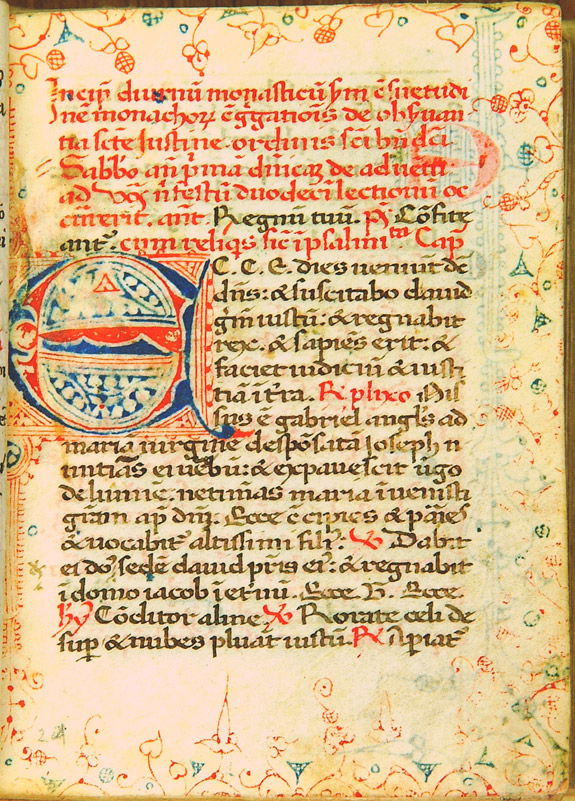 Incip̄ diurnū monasticū s̄m c̄suetudi
nē monachoꝝ cōg̃gatiōis de obs̃uan
tia sc̄te Iustine. ordinis sc̄i bn̄dc̄i
Sabbō an̄ p̄mā dn̄icaꝫ de aduētū
ad vꝰꝑ n̄ festū duodecī lectionū oc
currerit. ant̄. Regnū tuū. p̄s Cōfite
ant̄. cum reliqs sic ī psalmīta Cap̄
ECCE. dies ueniūt dc̄
dn̄s: & suscitabo dauid
g̃m iustū: & regnabit
rex: & sapiēs erit: &
faciet iudiciū & iusti
tiā ī t̄ra. ℞ plixo Mis
sus ē gabriel angl̄s ad
mariā uirginē despōsatā Ioseph n
nūtiās ei uerbū: & expauescit uīgo
de lumīe: ne timeas maria īuenisti
grām ap̄ dn̄m: Ecce cōcipies & paries
& uocabit̄ altissimi filiꝰ: ℣ Dabit
ei dōs sedē dauid pr̄is eiꝰ: & regnabit
ī domo iacob ī et̄nū. Ecce. G. Ecce.
hỹ Cōditor alme ℣ Rorate celi de
suꝑ & nubes pluāt iustū. ℞ Aꝑiat̄